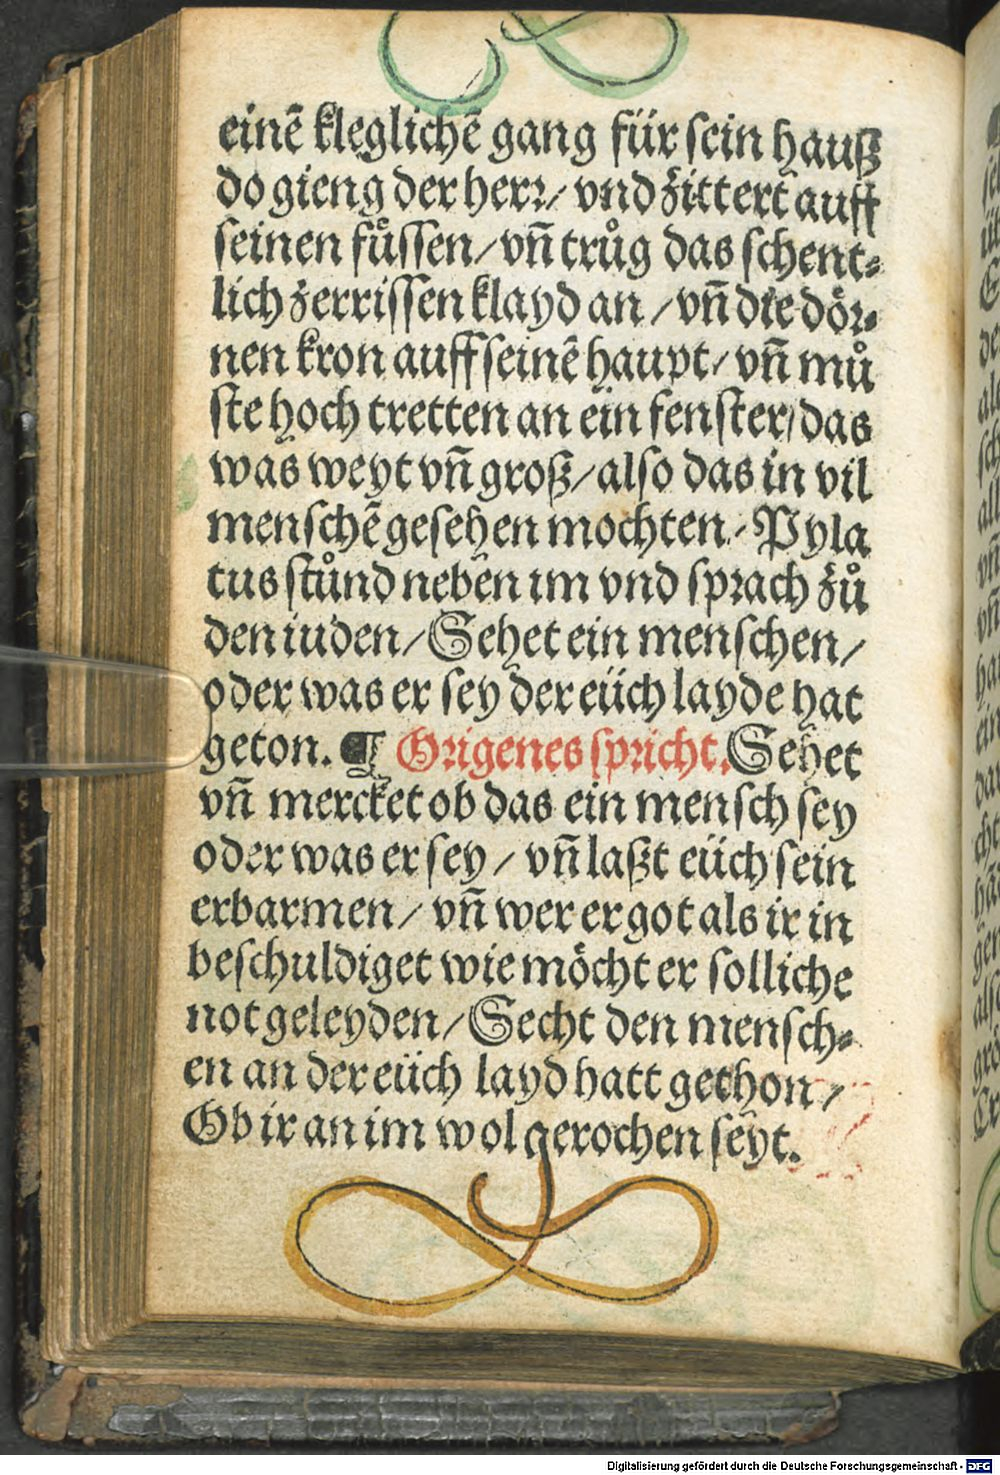 einẽ kleglichẽ gang für sein hauß
do gieng der herr/ vnd zittert auff
seinen fuͤssen/ vñ truͦg das schent⸗
lich zerrissen klayd an / vñ die dör⸗
nen kron auff seinẽ haupt/ vñ muͦ
ste hoch tretten an ein fenster/ das
was weyt vñ groß/ also das in vil
menschẽ gesehen mochten/ Pyla
tus stuͦnd neben im vnd sprach zuͦ
den iuden/ Sehet ein menschen/
oder was er sey der eüch layde hat
geton. ¶ Origenes spricht. Sehet
vñ mercket ob das ein mensch sey
oder was er sey / vñ laßt eüch sein
erbarmen/ vñ wer er got als ir in
beschuldiget wie möcht er solliche
not geleyden/ Secht den mensch⸗
en an der eüch layd hatt gethon/
Ob ir an im wol gerochen seyt.
Digitalisierung gefördert durch die Deutsche Forschungsgemeinschaft - DFG